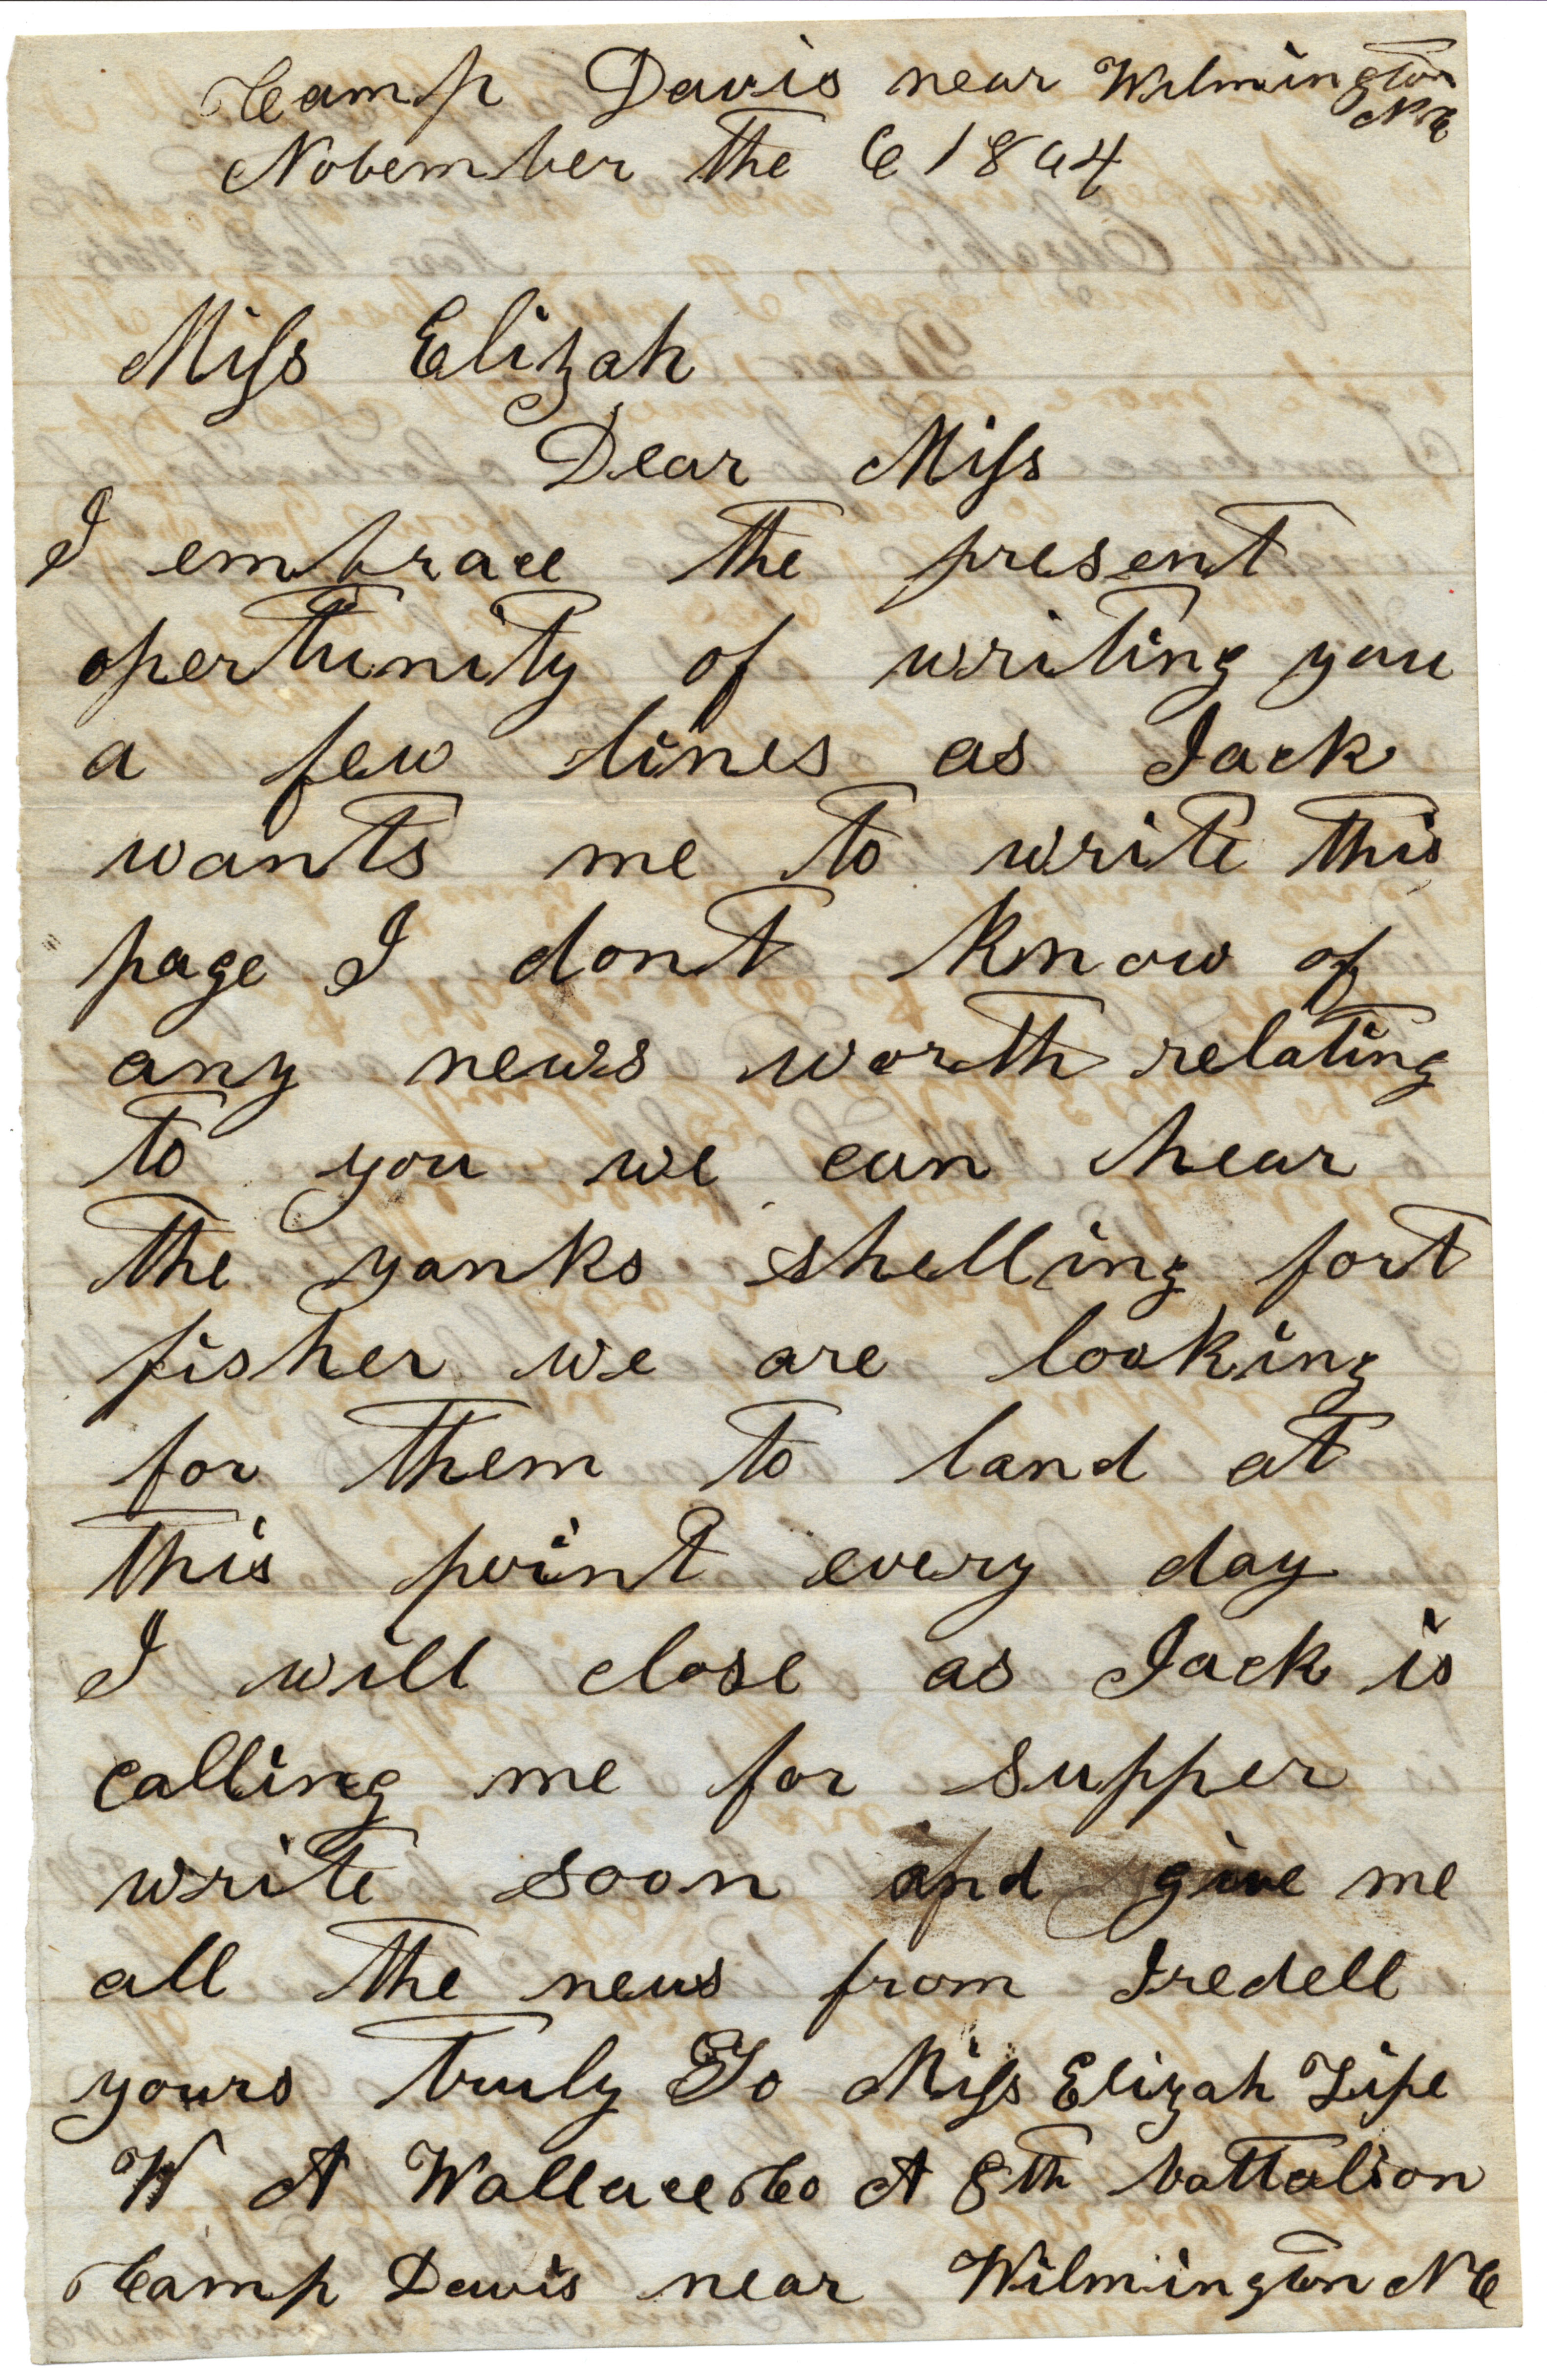 Camp Davis near Wilmington
NC
Nobember the 6 1864
Miss Elizah
Dear Miss
I embrace the present
opertunity of writing you
a few lines as Jack
wants me to write this
page I dont know of
any news worth relating
to you we can hear
the yanks shelling fort
fisher we are looking
for them to land at
this point every day
I will close as Jack is
calling me for supper
write soon and give me
all the news from Iredell
yours truly To Miss Elizah Lipe
W A Wallace Co A 8th battalion
Camp Davis near Wilmington NC